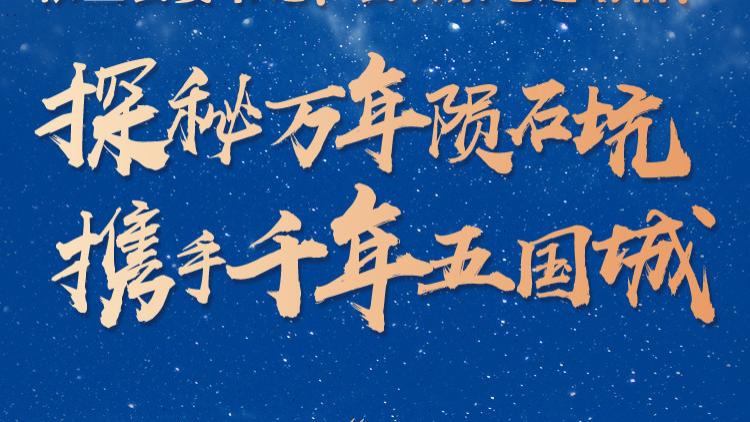 探秘万年陨石坑
携手千年五国城